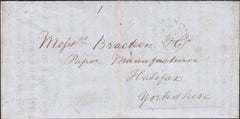 1
Messrs Bracken & Co
Paper Manufacturer
Halifax
Yorkshire